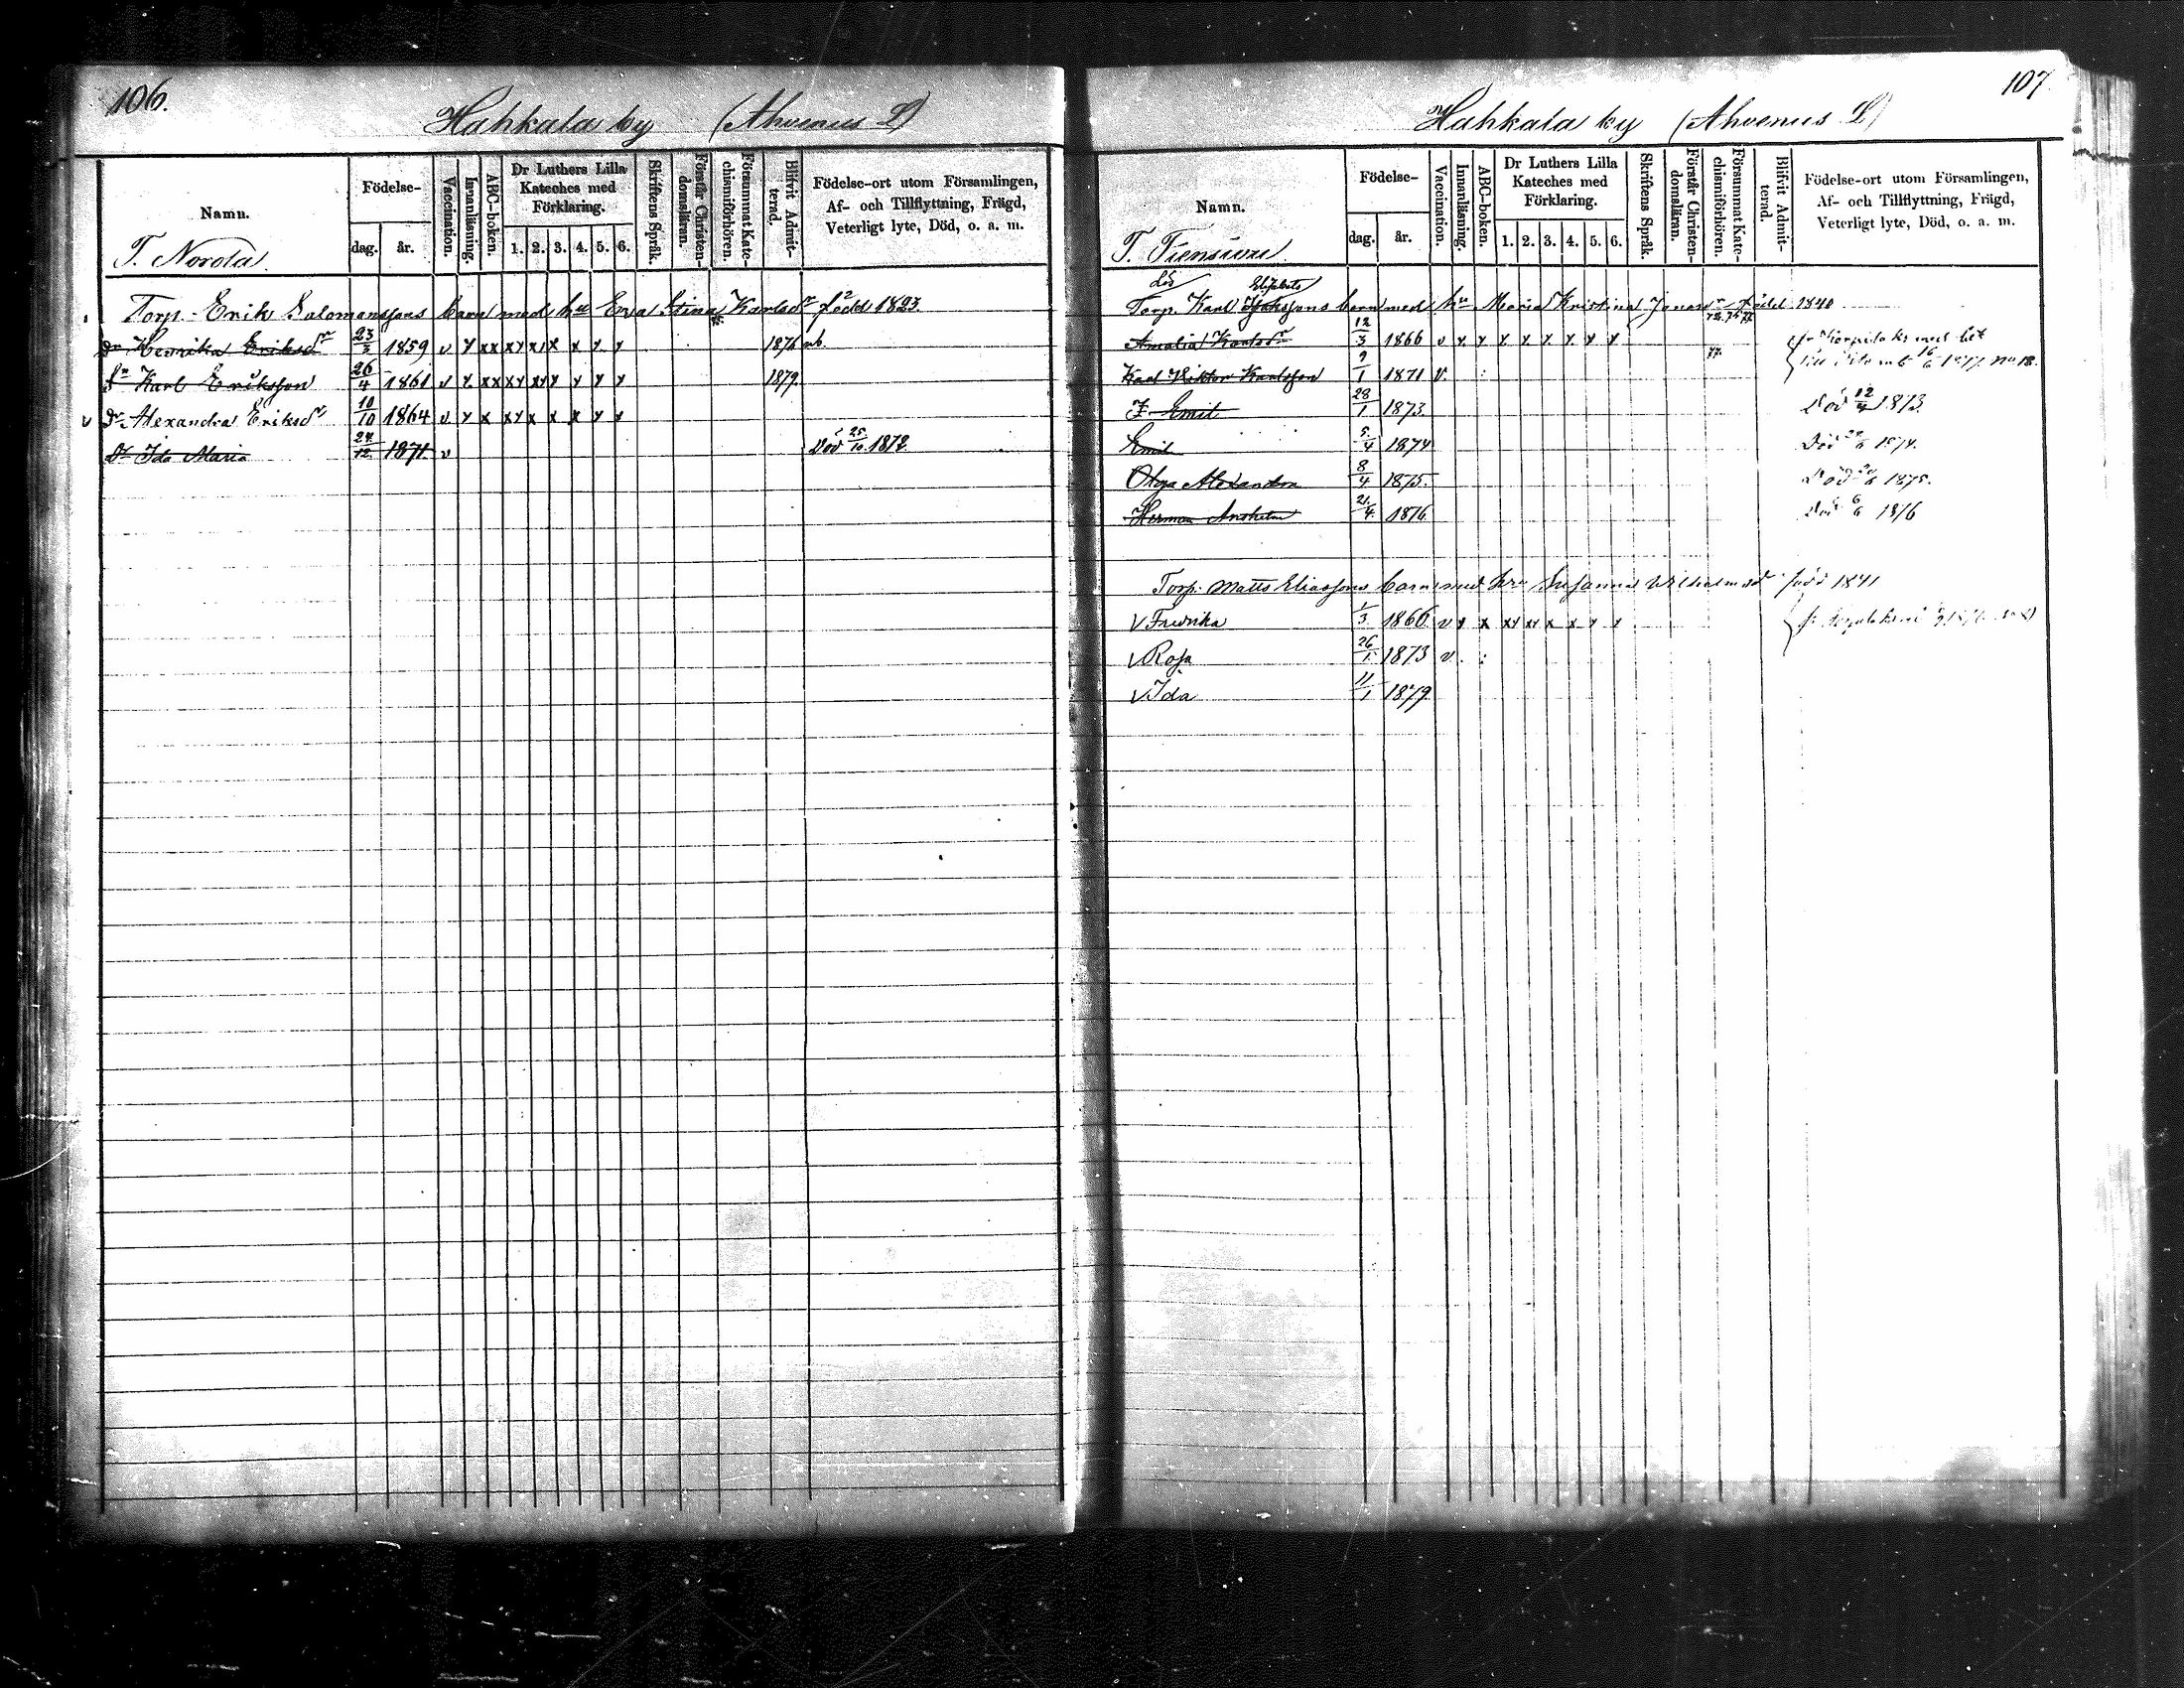 106.
Hahkala by (Ahvenus L)
Namn.
Födelse-
dag.
år.
Vaccination.
Innanläsning.
ABC-boken.
Dr Luthers Lilla
Kateches med
Förklaring.
1. 2. 3. 4. 5. 6.
Skriftens Språk.
Förstår Christen-
domsläran.
Försummat Kate-
chismiförhören.
Blifvit Admit-
terad.
Födelse-ort utom Församlingen,
Af- och Tillflyttning, Frägd,
Veterligt lyte, Död, o. a. m.
T. Norola
Torp. Erik Salomonssons barn med hu Eva Stina Karlsdr född 1823.
Dr Henrika Eriksdr 23/3 1859 v y xx xy x x x y y 1876 nb.
Sn Karl Eriksson 26/4 1861 v y xx xy xy y y y y 1879.
v Dr Alexandra Eriksdr 10/10 1864 v y x xy x x x y y
Dr Ida Maria 24/12 1871 v Död 25/10 1872.
107
Hahkala by (Ahvenus L)
Namn.
Födelse-
dag.
år.
Vaccination.
Innanläsning.
ABC-boken.
Dr Luthers Lilla
Kateches med
Förklaring.
1. 2. 3. 4. 5. 6.
Skriftens Språk.
Förstår Christen-
domsläran.
Försummat Kate-
chismiförhören.
Blifvit Admit-
terad.
Födelse-ort utom Församlingen,
Af- och Tillflyttning, Frägd,
Veterligt lyte, Död, o. a. m.
T. Tiensuu
Torp. Karl barn med hu Maria Kristina Jonasdr född 1840
Amalia Karlsdr 12/3 1866 v y y y y y y y y
Karl Viktor Karlsson 9/1 1871 v. 77.
F Emil 28/1 1873 Död 12/4 1873
Emil 5/4 1874 Död 1874.
Olga Alexandra 8/4 1875. Död 1875.
Herman Anshelm 21/4 1876 Död 6/6 1876
Torp. Matts Eliassons barn med hu Susanna Wilhelmsdr född 1841
v Fredrika 1/3 1866 v y x xy xy x x y y
v Rosa 26/1 1873 v
v Ida 11/1 1879.